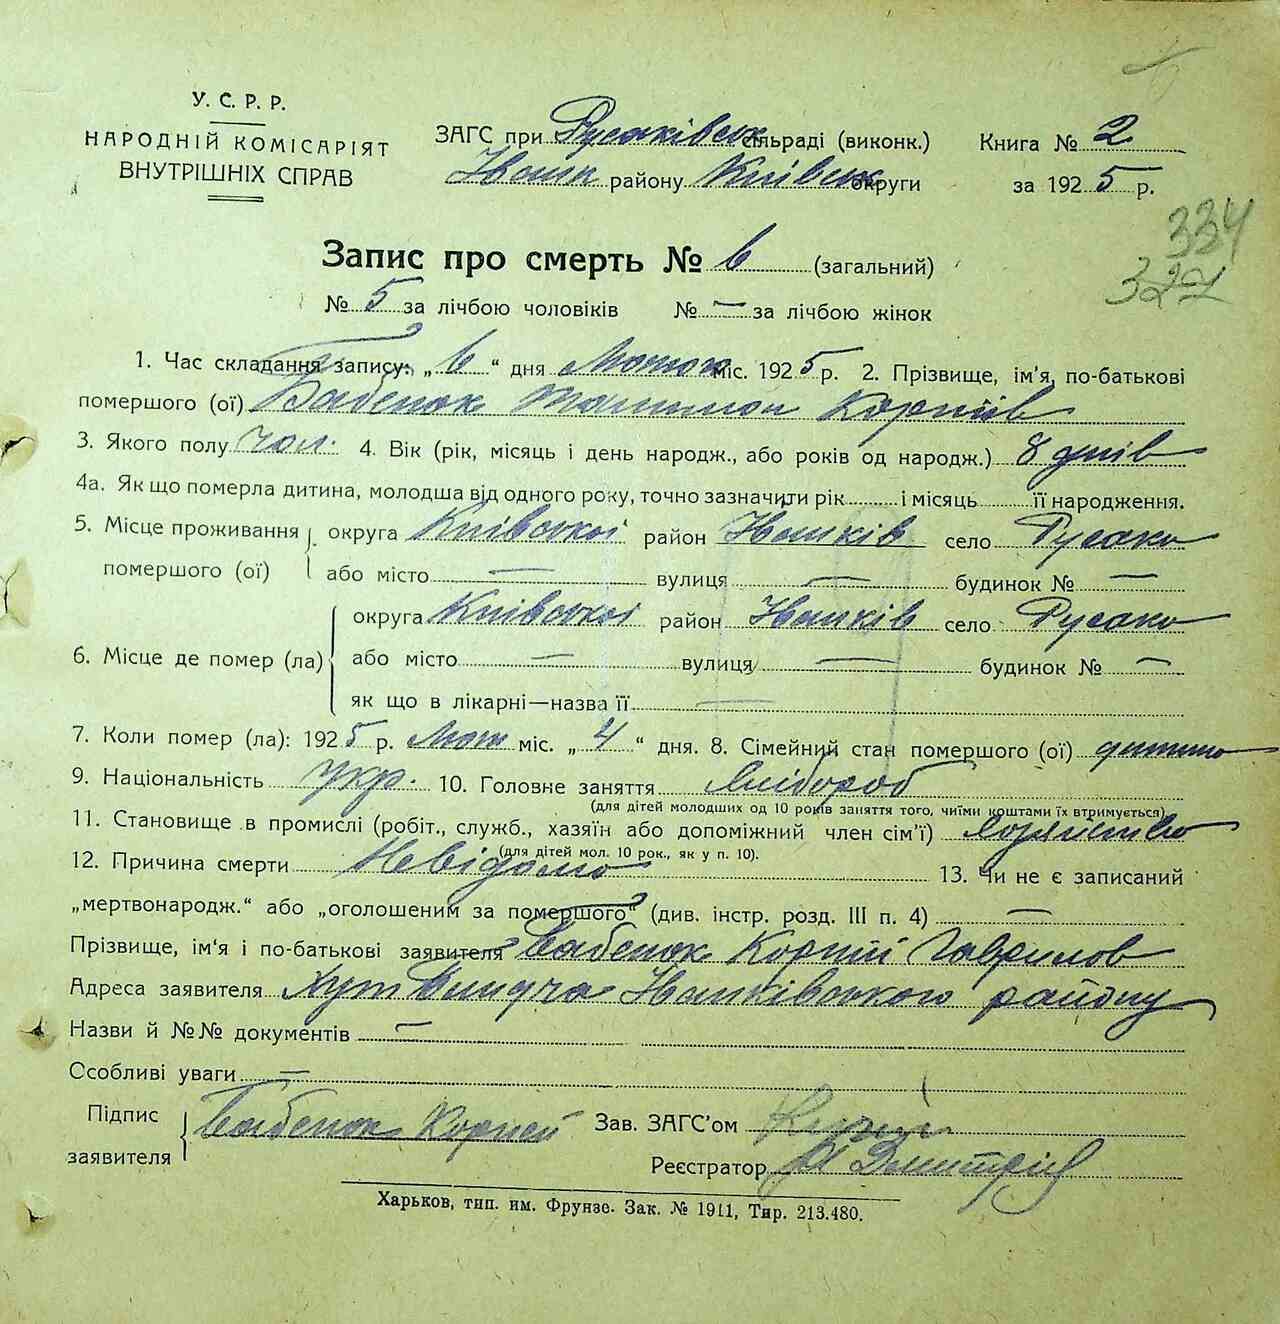 У. С. Р. Р.
НАРОДНІЙ КОМІСАРІЯТ
ВНУТРІШНІХ СПРАВ
ЗАГС при Русаківськ сільраді (виконк.)
Іванк району Київськ округи
Книга № 2
за 1925 р.
334
327
Запис про смерть № 6 (загальний)
№ 5 за лічбою чоловіків № — за лічбою жінок
1. Час складання запису: „6“ дня Лютого міс. 1925 р. 2. Прізвище, ім'я, по-батькові
помершого (ої) Бабенок Корніїв
3. Якого полу чол. 4. Вік (рік, місяць і день народж., або років од народж.) 8 днів
4а. Як що померла дитина, молодша від одного року, точно зазначити рік і місяць її народження.
5. Місце проживання округа Київської район Іванків село Русаки
помершого (ої) або місто — вулиця — будинок № —
округа Київської район Іванків село Русаки
6. Місце де помер (ла) або місто — вулиця — будинок № —
як що в лікарні—назва її —
7. Коли помер (ла): 1925 р. Лют міс. „4“ дня. 8. Сімейний стан помершого (ої) дитина
9. Національність укр. 10. Головне заняття хлібороб
(для дітей молодших од 10 років заняття того, чиїми коштами їх втримується)
11. Становище в промислі (робіт., служб., хазяїн або допоміжний член сім'ї)
(для дітей мол. 10 рок., як у п. 10).
12. Причина смерти Невідомо 13. Чи не є записаний
„мертвонародж.“ або „оголошеним за помершого“ (див. інстр. розд. III п. 4) —
Прізвище, ім'я і по-батькові заявителя Бабенок Корній Гаврилов
Адреса заявителя Хут Іванківського району
Назви й №№ документів —
Особливі уваги —
Підпис
заявителя Бабенок Корней
Зав. ЗАГС'ом
Реєстратор
Харьков, тип. им. Фрунзе. Зак. № 1911, Тир. 213.480.